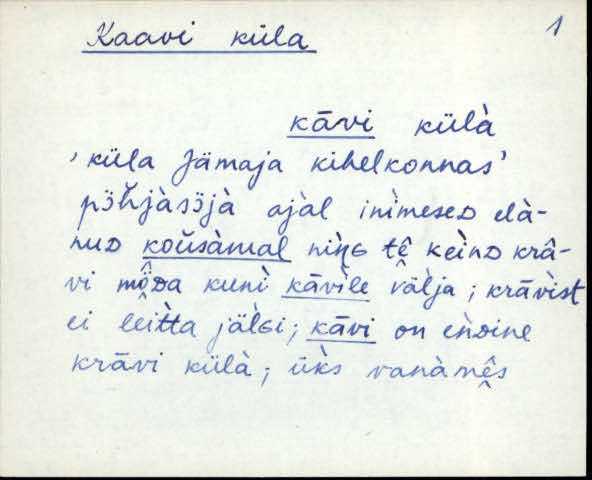 Kaavi küla 1
kāvi külà
'küla Jämaja kihelkonnas'
pȭhjàsȭjà ajàl inìmeseᴅ elà-
nuᴅ koùsàmal niņɢ tê̬ keìnᴅ krâ-
vi mô̬ᴅa kunì kāvìle välja; krāvist
ei leìtta jälɢi; kāvi on enᴅine
krāvi külà; üks vanàmê̬s